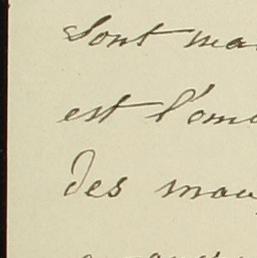 Sont ma
est l'om
des mau